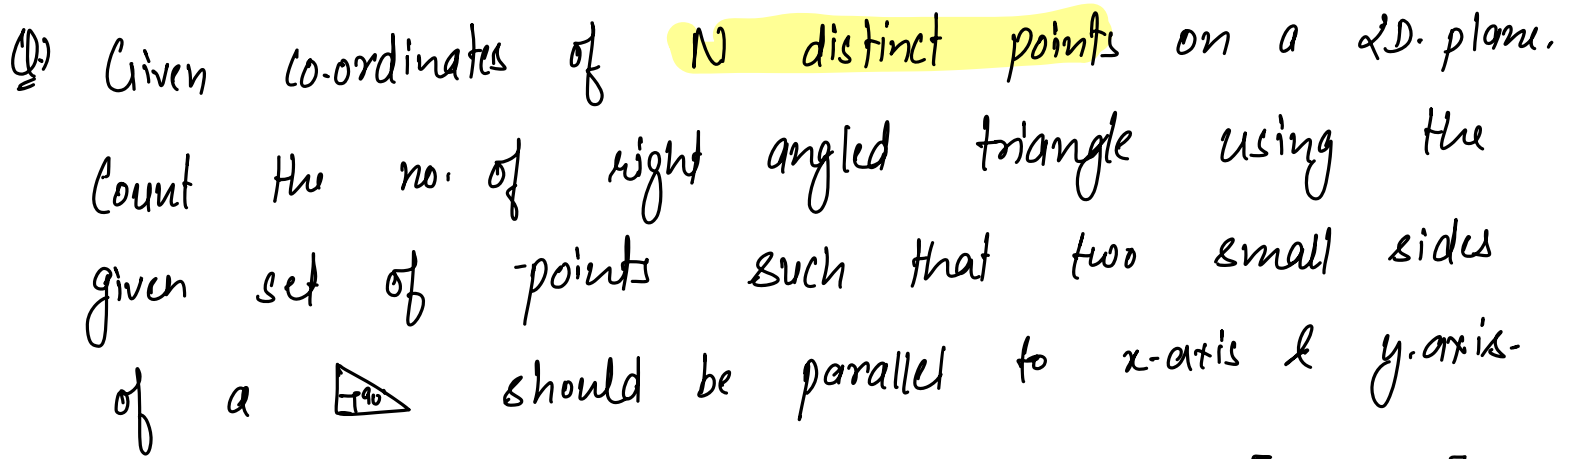 Q.) Given co-ordinates of N distinct points on a 2D. plane.
Count the no. of right angled triangle using the
given set of points such that two small sides
of a 90 should be parallel to x-axis & y-axis.